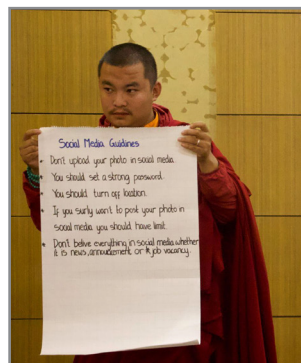 Social Media Guidlines
Don't upload your photo in social media
You should set a strong password.
You should turn off location.
If you surly want to post your photo in
social media you should have limit.
Don't belive everything in social media whether
it is news, annoucement or job vacancy.